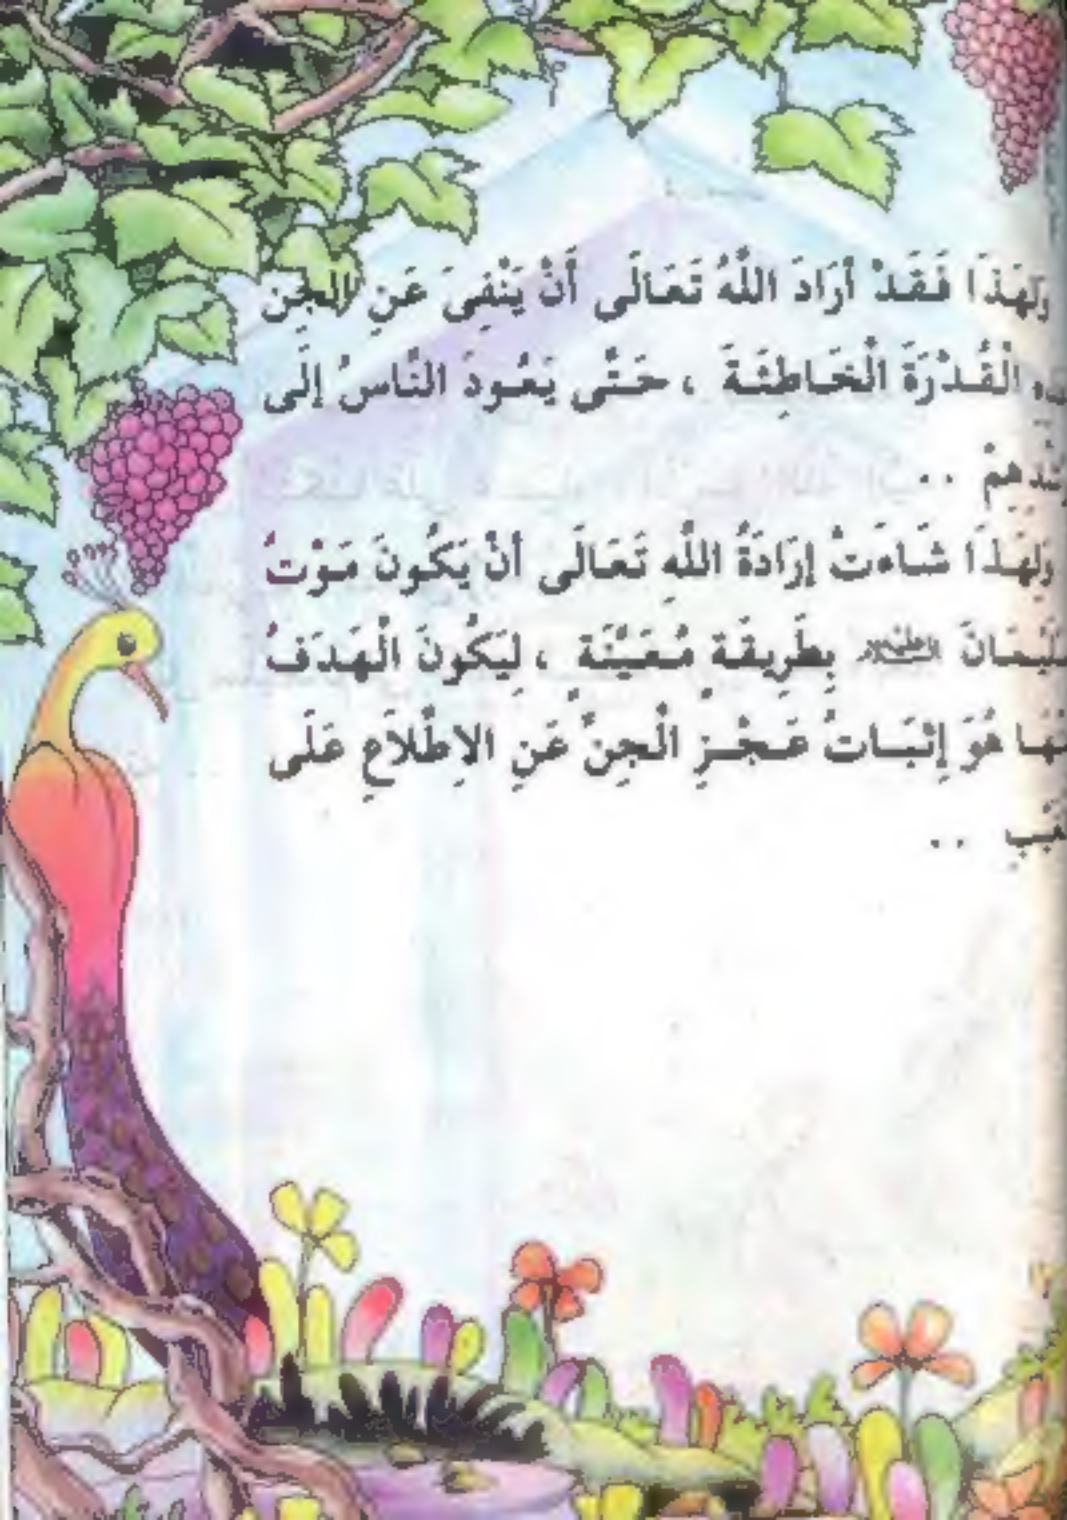 وَلِهَذَا فَقَدْ أَرَادَ اللَّهُ تَعَالَى أَنْ يَنْفِىَ عَنِ الْجِنِّ
الْقُدْرَةَ الْخَاطِئَةَ ، حَتَّى يَعُودَ النَّاسُ إِلَى
رُشْدِهِمْ ..
وَلِهَذَا شَاءَتْ إِرَادَةُ اللَّهِ تَعَالَى أَنْ يَكُونَ مَوْتُ
سُلَيْمَانَ بِطَرِيقَةٍ مُعَيَّنَةٍ ، لِيَكُونَ الْهَدَفُ
مِنْهَا هُوَ إِثْبَاتُ عَجْزِ الْجِنِّ عَنِ الاِطِّلاَعِ عَلَى
الْغَيْبِ ..